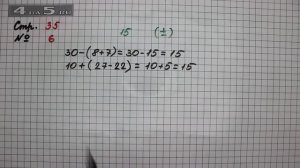 4 ПО 5.RU
Стр. 35 15 (±)
№ 6
30-(8+7)=30-15=15
10+(27-22)=10+5=15